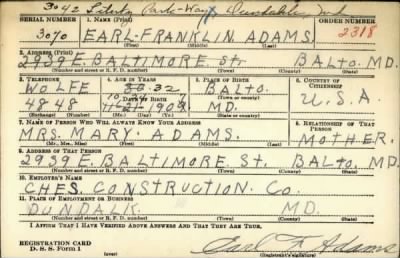 3042 Liberty Park-Way, Dundalk, Md
SERIAL NUMBER 1. NAME (Print) ORDER NUMBER
3070 EARL-FRANKLIN ADAMS 2318
(First) (Middle) (Last)
2. ADDRESS (Print)
2939 E. BALTIMORE St. BALTO. MD.
(Number and street or R. F. D. number) (Town) (County) (State)
3. TELEPHONE 4. AGE IN YEARS 5. PLACE OF BIRTH 6. COUNTRY OF CITIZENSHIP
WOLFE 32 BALTO. U.S.A.
DATE OF BIRTH (Town or county)
4848 1908 MD.
(Exchange) (Number) (Mo.) (Day) (Yr.) (State or country)
7. NAME OF PERSON WHO WILL ALWAYS KNOW YOUR ADDRESS 8. RELATIONSHIP OF THAT PERSON
MRS. MARY ADAMS. MOTHER.
(Mr., Mrs., Miss) (First) (Middle) (Last)
9. ADDRESS OF THAT PERSON
2939 E. BALTIMORE St. BALTO. MD.
(Number and street or R. F. D. number) (Town) (County) (State)
10. EMPLOYER'S NAME
CHES. CONSTRUCTION Co.
11. PLACE OF EMPLOYMENT OR BUSINESS
DUNDALK MD.
(Number and street or R. F. D. number) (Town) (County) (State)
I AFFIRM THAT I HAVE VERIFIED ABOVE ANSWERS AND THAT THEY ARE TRUE.
REGISTRATION CARD
D. S. S. Form 1 (over) Earl F. Adams
(Registrant's signature)